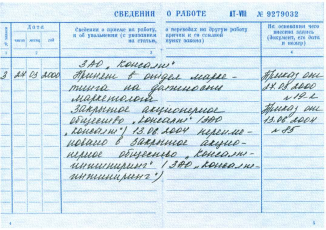 СВЕДЕНИЯ О РАБОТЕ АТ-VIII № 9279032
№ записи
Дата
число месяц год
Сведения о приеме на работу, о переводах на другую работу и об увольнении (с указанием причин и со ссылкой на статью, пункт закона)
На основании чего внесена запись (документ, его дата и номер)
1 2 3 4
ЗАО „Консалт"
3 24 03 2000 Принят в отдел марке- Приказ от
тинга на должность
маркетолога
Закрытое акционерное Приказ от
общество „Консалт" (ЗАО 13.08.2004
„Консалт") 13.08.2004 переиме-
новано в Закрытое акцио-
нерное общество „Консалт-
инжиниринг" (ЗАО „Консалт-
инжиниринг")